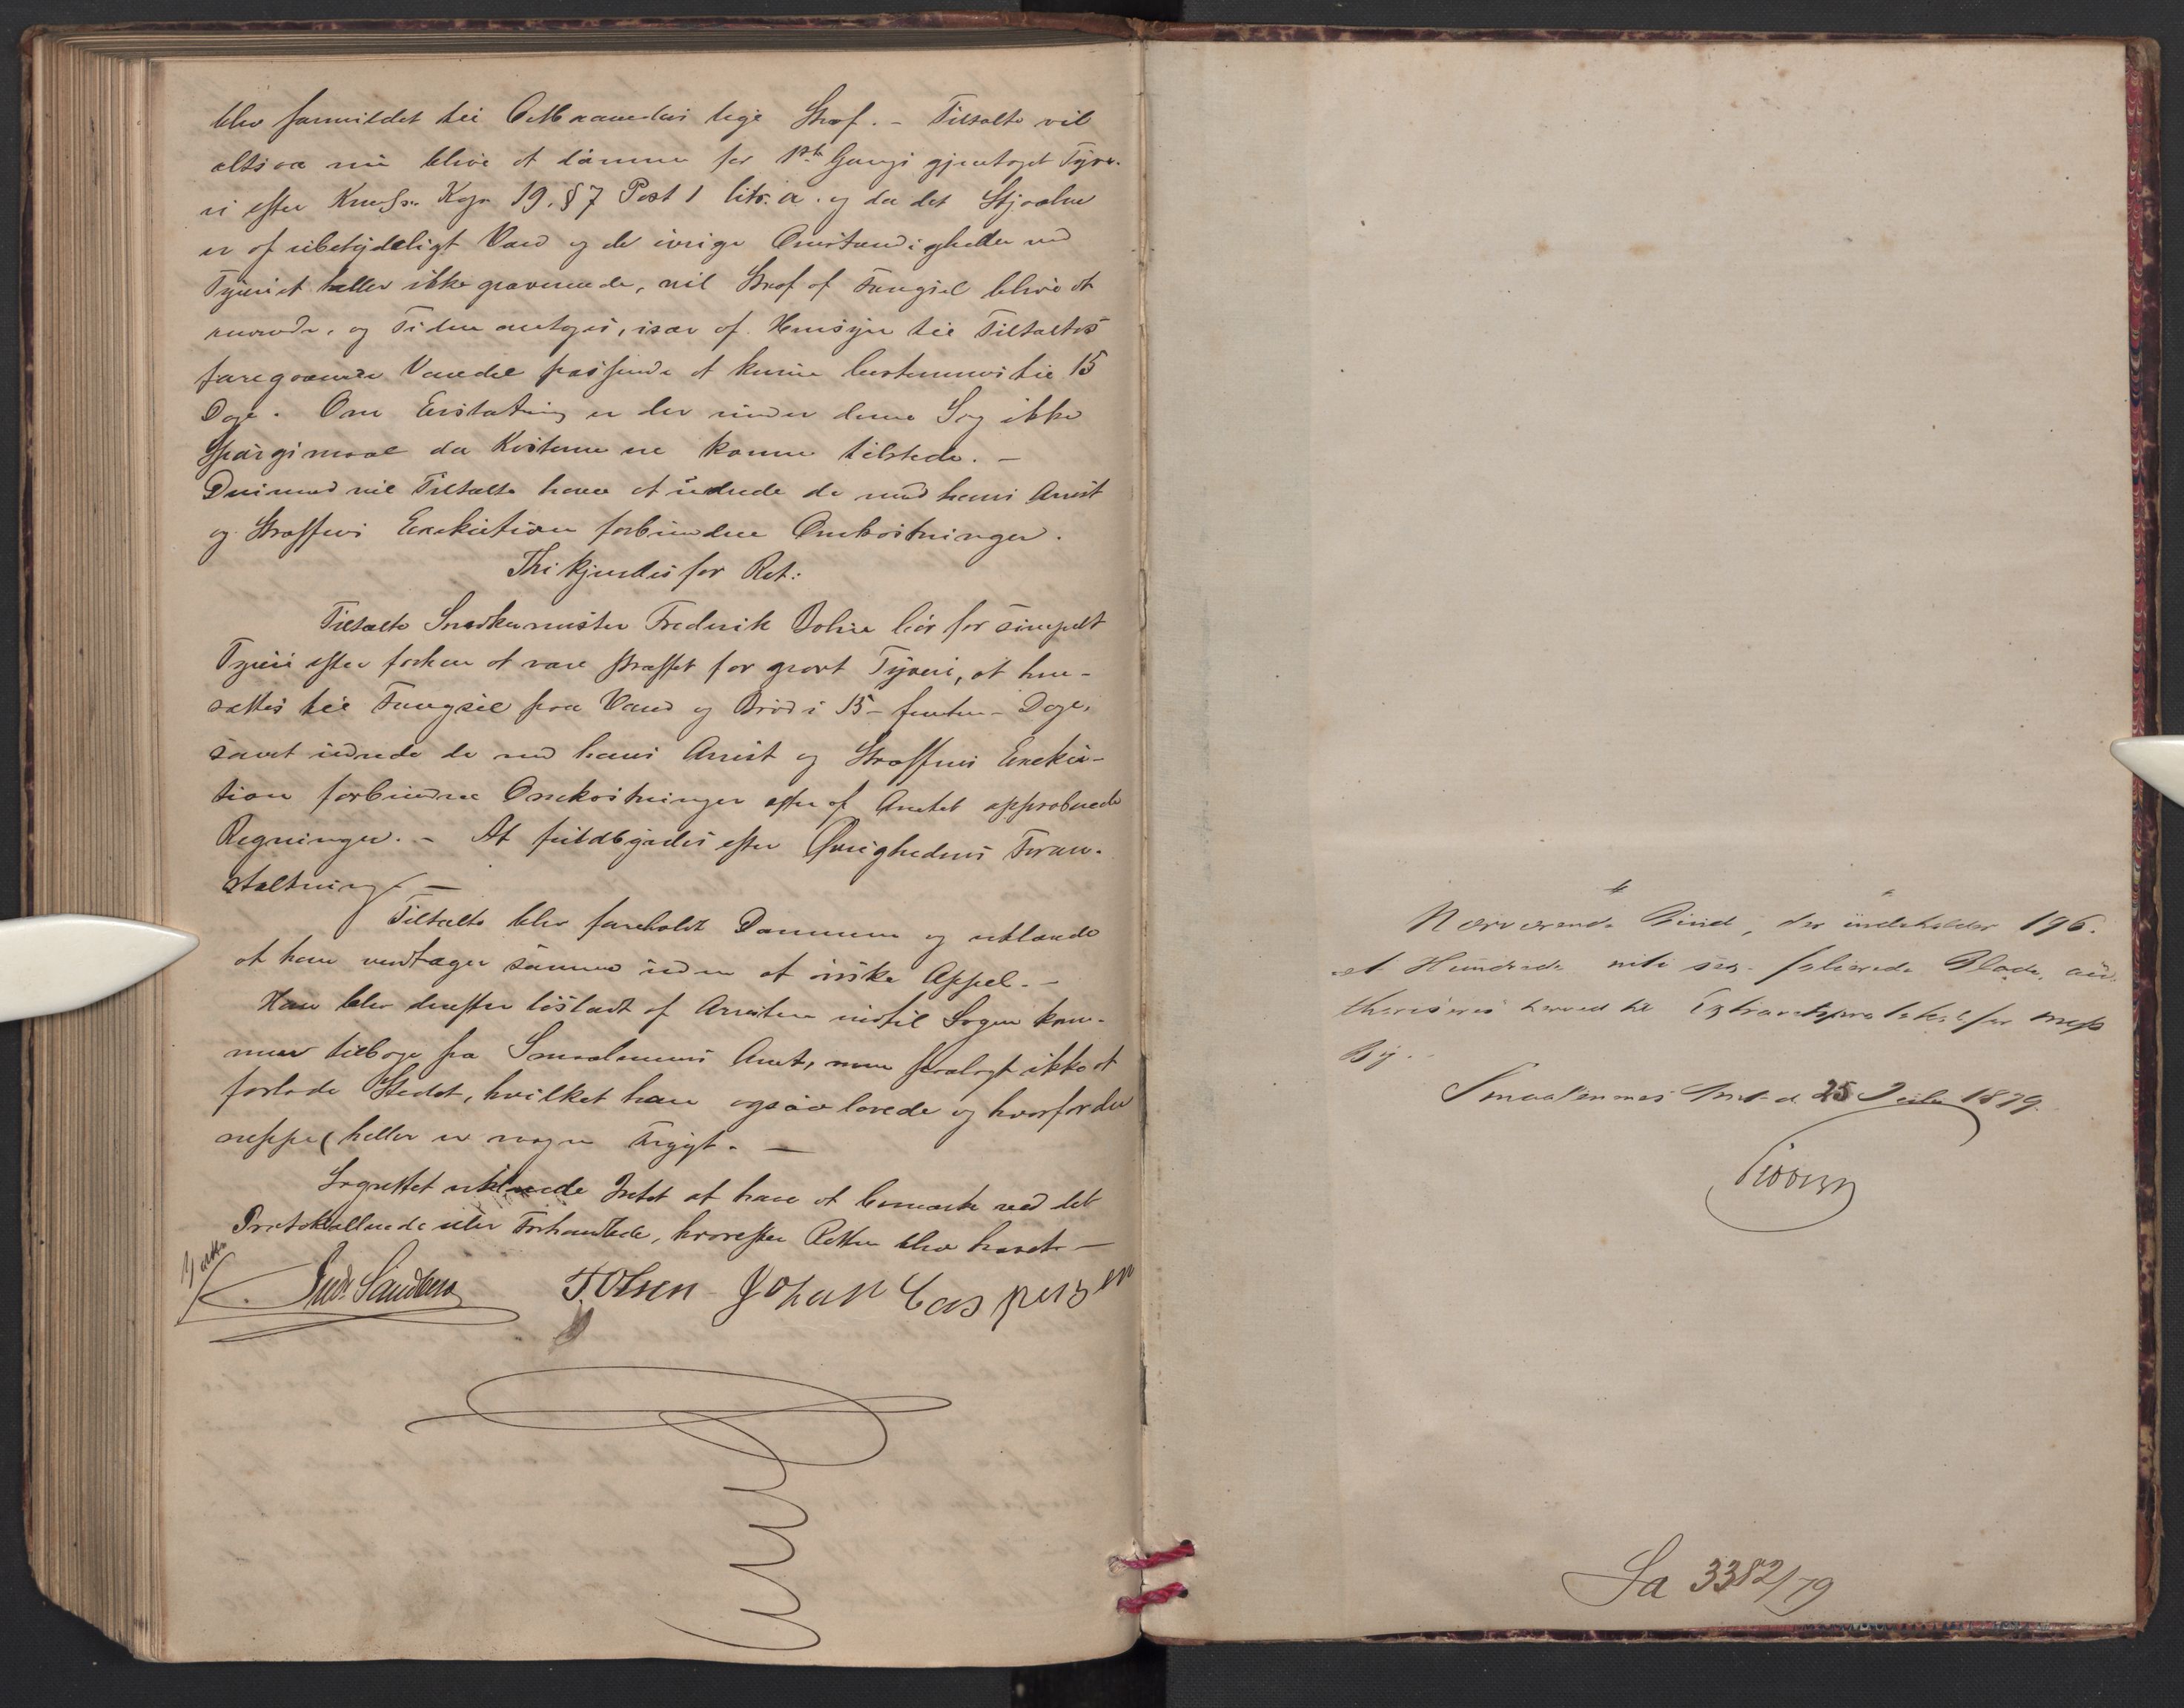 blev formildet til 6 Maaneders lige Straf. – Tiltalte vil
altsaa nu blive at dømme for 1ste Gang gjentaget Tyve-
ri efter Krml. Kap. 19. § 7 Post 1 litr. a. og da det Stjaalne
er af ubetydeligt Værd og de øvrige Omstændigheder ved
Tyveriet heller ikke graverende, vil Straf af Fængsel blive at
anvende, og Tiden antages, især af Hensyn til Tiltaltes
foregaaende Vandel passende at kunne bestemmes til 15
Dage. Om Erstatning er der under denne Sag ikke
Spørgsmaal da Kosterne ere komne tilstede. –
Derimod vil Tiltalte have at udrede de med hans Arrest
og Straffens Exekution forbundne Omkostninger.
Thi kjendes for Ret:
Tiltalte Snedkermester Frederik Bolin bør for simpelt
Tyveri efter forhen at være straffet for grovt Tyveri, at hen-
sættes til Fængsel paa Vand og Brød i 15 – femten – Dage,
samt udrede de med hans Arrest og Straffens Exeku-
tion forbundne Omkostninger efter af Amtet approberede
Regninger. – At fuldbyrdes efter Øvrighedens Foran-
staltning. –
Tiltalte blev foreholdt Dommen og erklærede
at han vedtager samme uden at ønske Appel. –
Han blev derefter løsladt af Arresten indtil Sagen kom-
mer tilbage fra Smaalenenes Amt, men paalagt ikke at
forlade Stedet, hvilket han ogsaa lovede og hvorfor der
neppe heller er nogen Frygt. –
Lagrettet erklærede Intet at have at bemærke ved det
Protokollerede eller Forhandlede, hvorefter Retten blev hævet. –
Sandberg T. Olsen Johan Caspersen
Nærværende Bind, der indeholder 196.
et Hundrede niti sex – folierede Blade, au-
thoriseres herved til Extraretsprotokol for Moss
By.
Smaalenenes Amt d. 25 Juli 1879.
Sa 3382/79